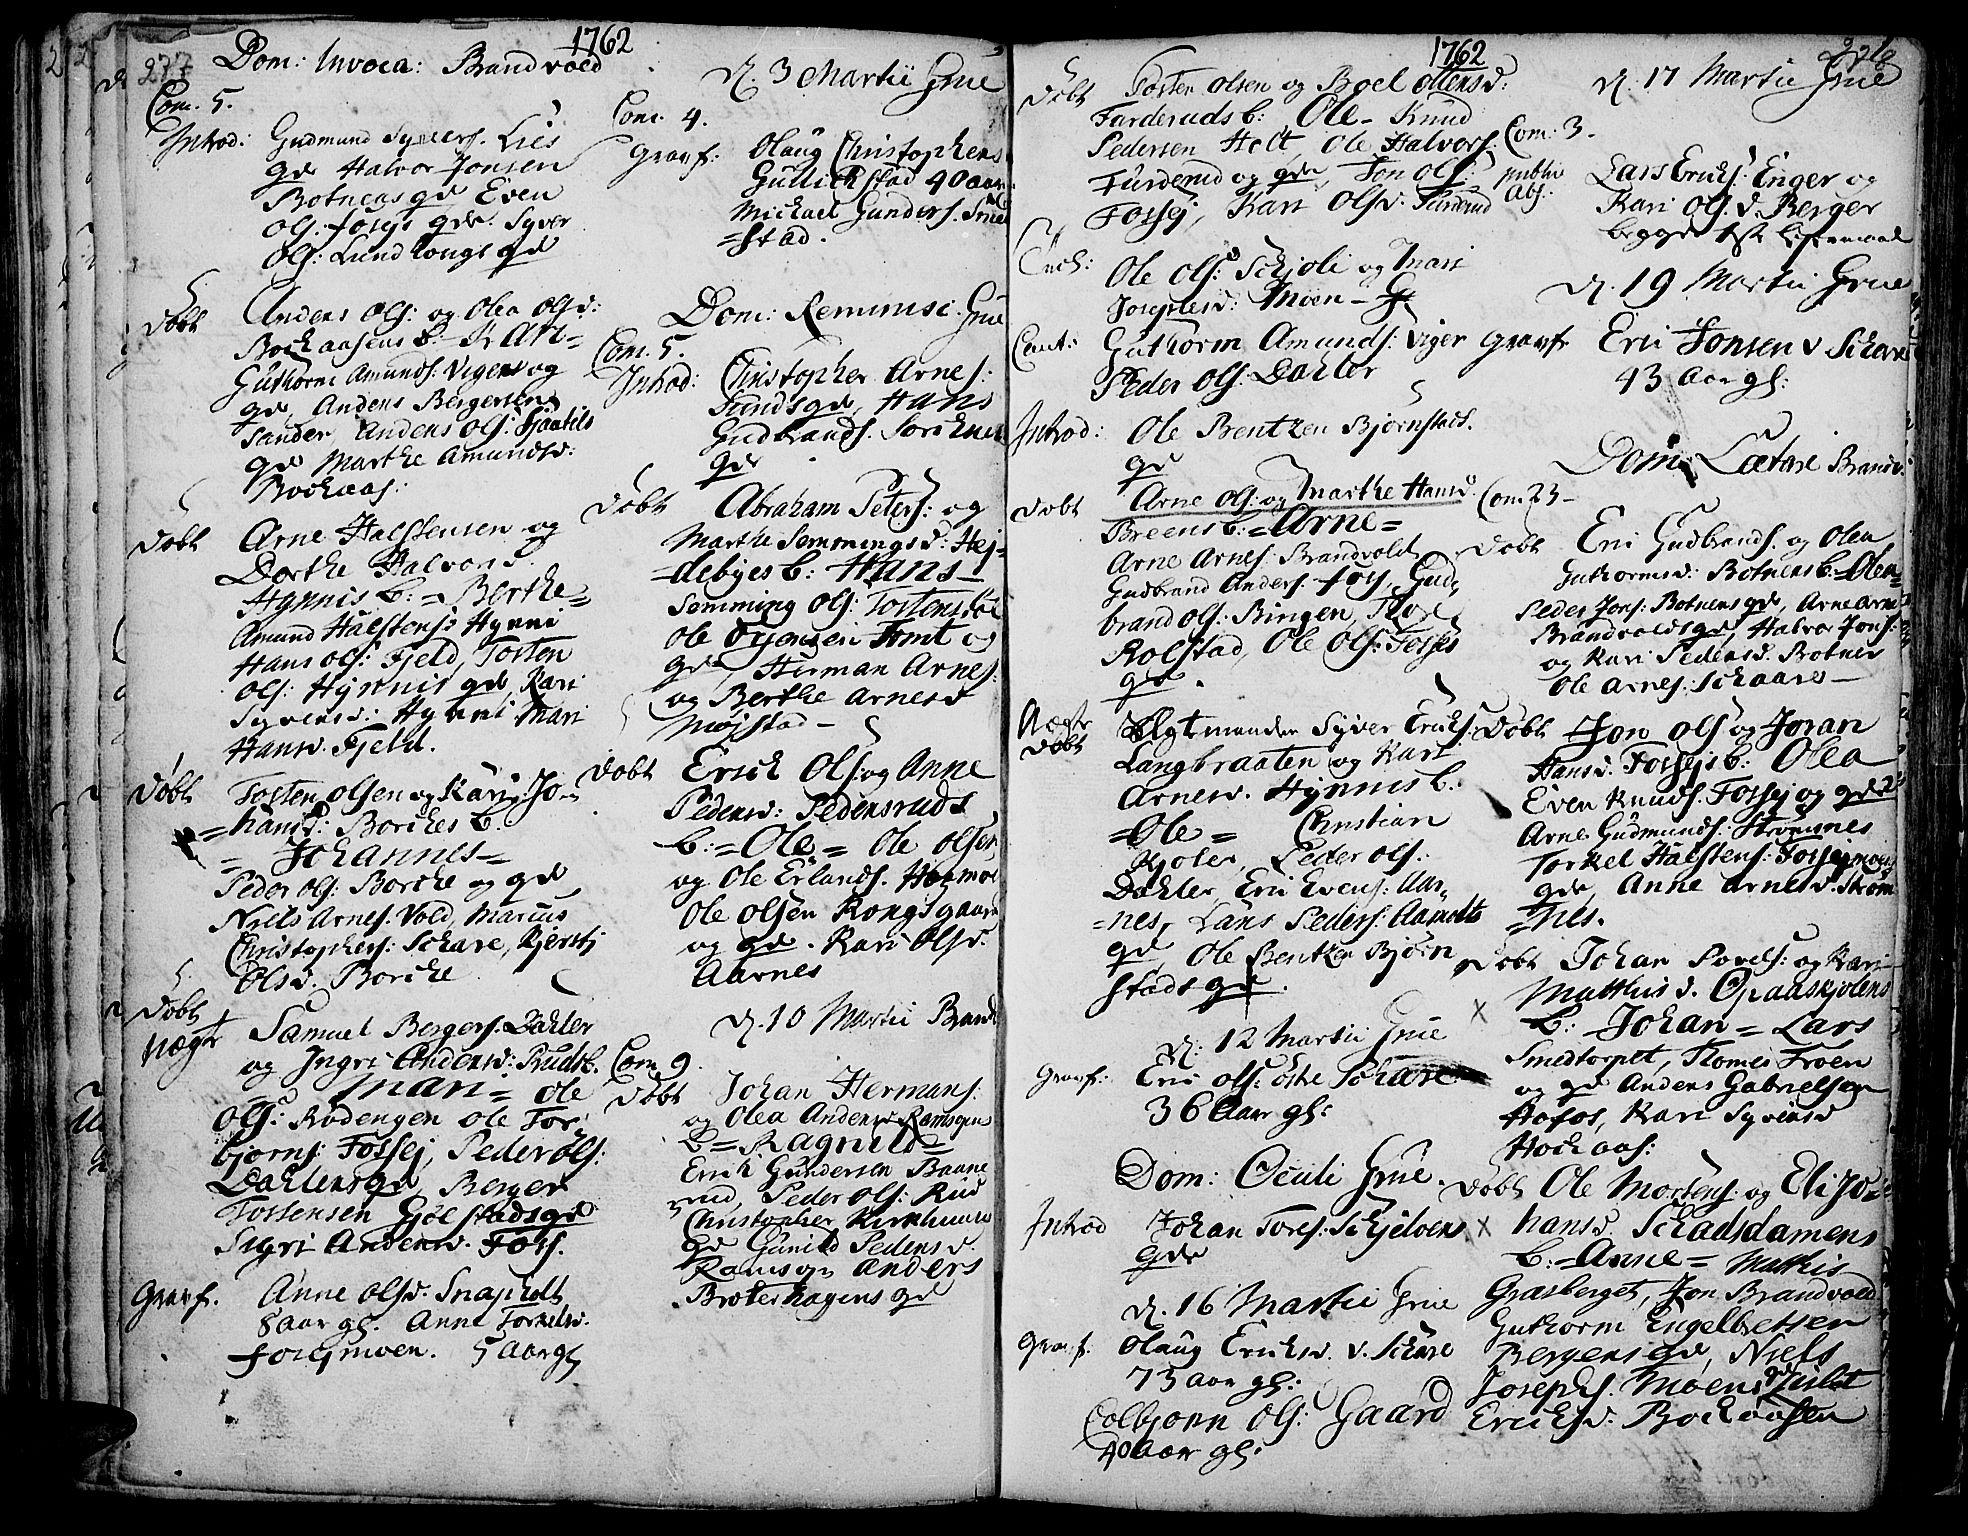 1762
277
Dom: Invoca: Brandvold
Com. 5.
Introd: Gudmund Syvers. Lies
gde Halvor Jonsen
Botnens gde Even
Ols: Fossis gde. Syver
Ols: Lundbongs gde
Døbt Anders Ols: og Olea Olsd:
Bochaasens b: =Kari=
Guthorm Amunds: Vigers og
gde, Anders Bergersen
Sander, Anders Ols: Kjaatils
gde Marthe Amundsd:
Bochaas:
Døbt Arne Halstensen og
Dorthe Halvorsd.
Hynnis b: =Berthe=
Amund Halstens: Hynni
Hans Ols: Fjeld, Tosten
Ols: Hynnis gde, Kari
Syversd: Hynni Mari
Hansd. Fjeld.
Døbt Tosten Olsen og Kari Jo-
=hansd: Borches b.
=Johannes=
Peder Ols: Borche og gde
Niels Arnes. Vold, Marius
Christophers: Schare, Kjersti
Olsd. Borche
Døbt Samuel Bergers. Dahler
og Ingri Andersd: Rudsb.
=Mari= Ole
Ols: Rødengen Ole Tor-
bjørns: Fossej, Peder Ols:
Dahlens gde, Berger
Tostensen Gjølstads gde
Sigri Andersd. Foss.
Gravf. Anne Olsd. Snapholt
8 Aar gl. Anne Torkelsd.
Fossmoen. 5 Aar gl
d. 3 Martii Grue
Com. 4.
Gravf: Olaug Christophersd
Gullichstad 40 aar
Michael Gunders. Grue
=stad.
Dom: Reminisc: Grue
Com. 5.
Introd: Christopher Arnes:
Sunds gde, Hans
Gudbrands. Sorknes
gde
Døbt Abraham Peters: og
Marthe Semmingsd: Hej=
=debyes b: Hans=
Semming Ols: Tostensbøl
Ole Ørjensen Tomt og
gde, Herman Arnes.
og Berthe Arnesd
Møjstad -
Døbt Erich Ols: og Anne
Pedersd: Pedersruds
b: =Ole= Ole Olsen
og Ole Erlands. Hogmoe
Ole Olsen Kongsgaard
og gde. Kari Olsd.
Aarnes
d. 10 Martii Brandv
Com. 9.
Døbt Johan Hermans:
og Olea Andersd Ramsøens
b =Ragnild=
Erich Gundersen Baane
rud, Peder Ols: Rud
Christopher Kirkhuuse
gde Gunild Pedersd.
Ramsøn Anders
Broterhagens gde
1762
Døbt Tosten Olsen og Boel Ottersd:
Farderuds b: Ole- Knud
Pedersen Holt Ole Halvors:
Furderud og gde Jon Ols:
Fossej, Kari Olsd. Furderud
Ole Ols: Schjøli og Mari
Josephsd: Moen-
Caut: Guthorm Amunds: Viger
Peder Ols: Dahler
Introd: Ole Bentzen Bjørnstads.
gde
Døbt Arne Ols: og Marthe Hansd.
Breens b: =Arne=
Arne Arnes: Brandvold
Gudbrand Anders. Foss, Gud-
brand Ols: Bingen,
Rolstad, Ole Ols: Fosses
gde.
Døbt Ægtmanden Syver Erichs:
Langbraaten og Kari
Arnesd. Hynnis b:
=Ole= Christian
Kjøler, Peder Ols:
Dahler, Eric Evens: Aar-
=nes, Lars Peders: Aamodts
gde, Ole Bentzen Bjørn
stads gde.
d. 12 Martii Grue
Gravf: Eric Ols: Schare
36 Aar gl:
Dom: Oculi Grue.
Introd Johan Tores: Schjelvens
gde
d. 16 Martii Grue
Gravf. Olaug Erichsd. v. Schare
73 aar gl:
Colbjørn Ols: Gaard
40 Aar gl:
d. 17 Martii Grue
Com: 3.
Publiv
Abs: Lars Erichs: Enger og
Kari Ols.d. Berger
begge 1ste Leyermaal
d. 19 Martii Grue
Gravf Eric Jonsen v Schare
43 Aar gl:
Dom: Lætare Brandv:
Com: 23-
Døbt Eric Gudbrands. og Olea
Guthormsd: Botnens b: =Olea=
Peder Jons: Botnens gde, Arne Arne
Brandvolds gde, Halvor Jons:
og Kari Pedersd. Botner
Ole Arnes: Schaare-
Døbt Jon Ols og Joran
Hansd. Fossejs b: Olea
Even Knuds. Fossej og gde
Arne Gudmunds: Strømnes
Torkel Halstens: Fossejmoens
gde, Anne Arnesd. Strøm
=nes.
Døbt Johan Povels: og Kari
Matthisd. Opaaskjolens
b: Johan= Lars
Smedtorpet, Thomes Froen
og gde Anders Gabrielsen
Hofos, Kari Syversd
Hochaas:
Døbt Ole Mortens: og Eli Jo=
hansd Schadsdamens
b: =Anne= Mathis
Græsberget, Jon Brandvold
Guthorm Engelbretsen
Bergers gde, Niels
Josephs. Moens gde
Erichsd: Bochaasen